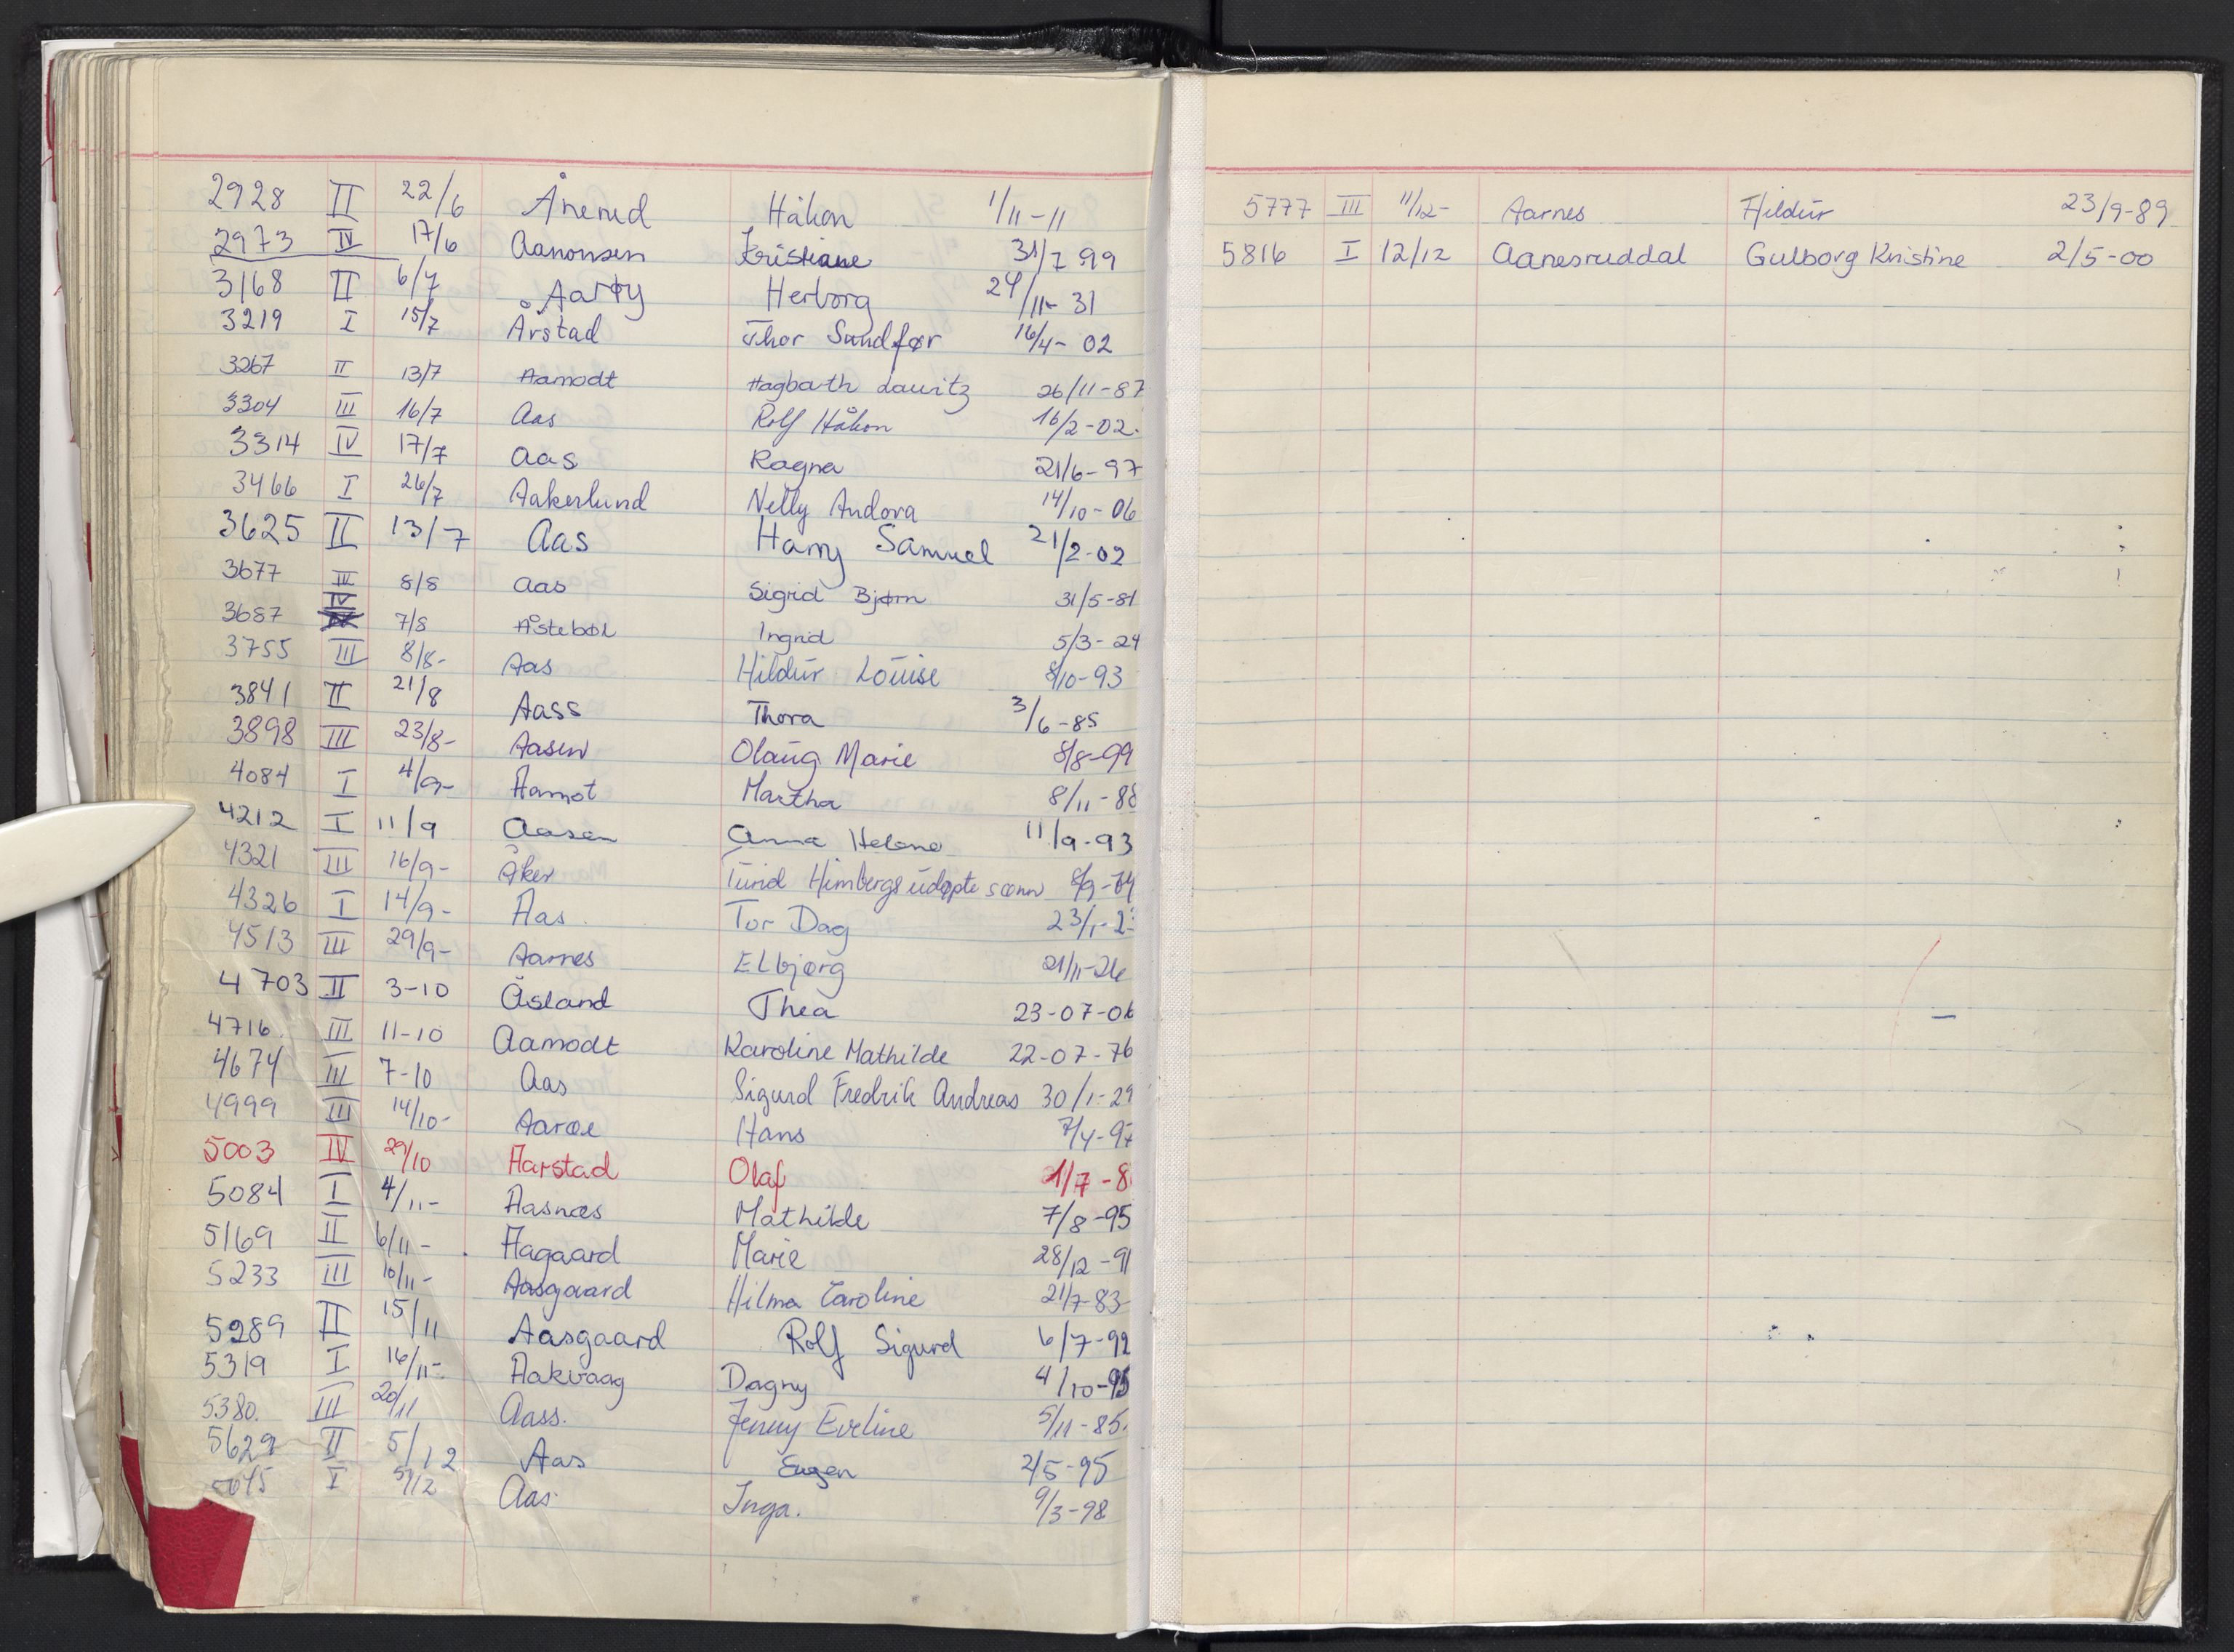 2928 II 22/6 Ånerud Håkon 1/11-11
2973 IV 17/6 Aanonsen Kristiane 31/7 99
3168 II 6/7 Aarøy Herborg 24/11-31
3219 I 15/7 Årstad Thor Sundfør 16/4-02
3267 II 13/7 Aamodt Hagbarth Lauritz 26/11-87
3304 III 16/7 Aas Rolf Håkon 16/2-02.
3314 IV 17/7 Aas Ragna 21/6-97
3466 I 26/7 Aakerlund Nelly Andora 14/10-06
3625 II 13/7 Aas Harry Samuel 21/2-02
3677 IV 8/8 Aas Sigrid Bjørn 31/5-81
3687 IV 7/8 Åstebøl Ingrid 5/3-24
3755 III 8/8- Aas Hildur Louise 8/10-93
3841 II 21/8 Aass Thora 3/6-85
3898 III 23/8- Aasen Olaug Marie 8/8-99
4084 I 4/9- Aamot Martha 8/11-88
4212 I 11/9 Aasen Anna Helene 11/9-93
4321 III 16/9- Åker Turid Himbergs udøpte sønn 8/9-74
4326 I 14/9- Aas. Tor Dag 23/1-
4513 III 29/9- Aarnes Elbjørg 21/11-26
4703 II 3-10 Åsland Thea 23-07-06
4716. III 11-10 Aamodt Karoline Mathilde 22-07-76
4674 III 7-10 Aas Sigurd Fredrik Andreas 30/1-29
4999 III 14/10- Aarøe Hans 7/4-97
5003 IV 29/10 Aarstad Olaf 1/7-8
5084 I 4/11- Aasnæs Mathilde 7/8-95
5169 II 6/11- Aagaard Marie 28/12-91
5233 III 10/11- Aasgaard Hilma Caroline 21/7-83
5289 II 15/11 Aasgaard Rolf Sigurd 6/7-92
5319 I 16/11- Aakvaag Dagny 4/10-95
5380. III 20/11 Aass. Jenny Eveline 5/11-85.
5629 II 5/12 Aas Eugen 2/5-95
I 5/12 Aas. Inga. 9/3-98
5777 III 11/12- Aarnes Hildur 23/9-89
5816 I 12/12 Aanesruddal Gulborg Kristine 2/5-00